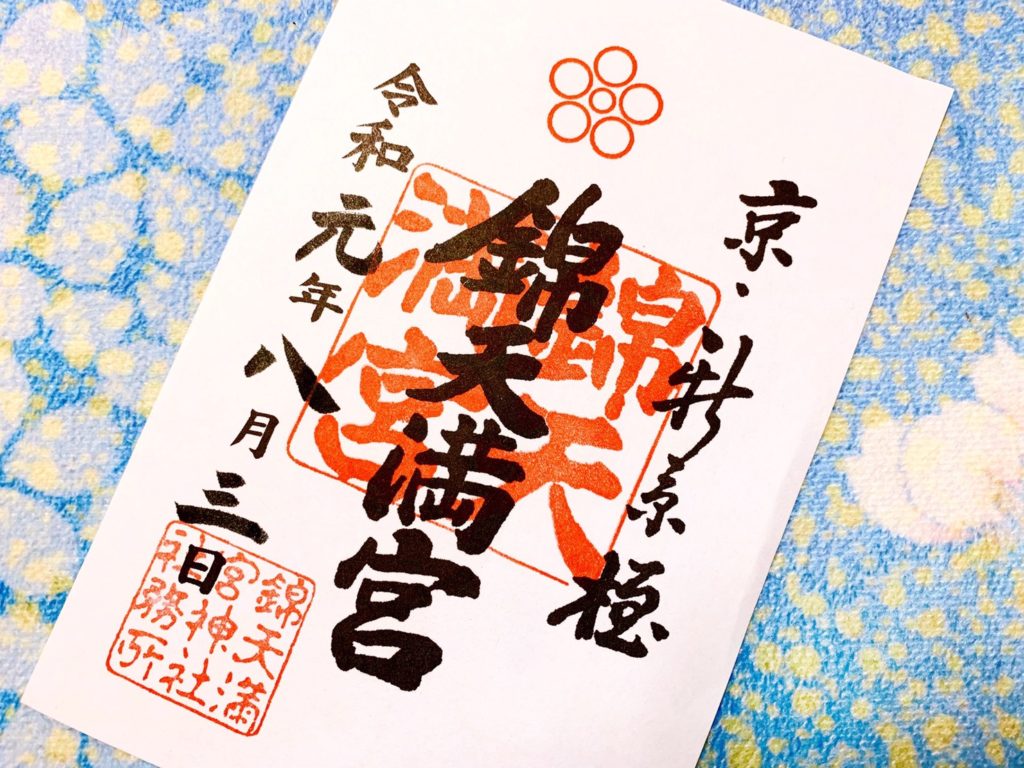 京・新京極
錦天満宮
錦天
満宮
令和元年八月三日
錦天満
宮神社
社務所